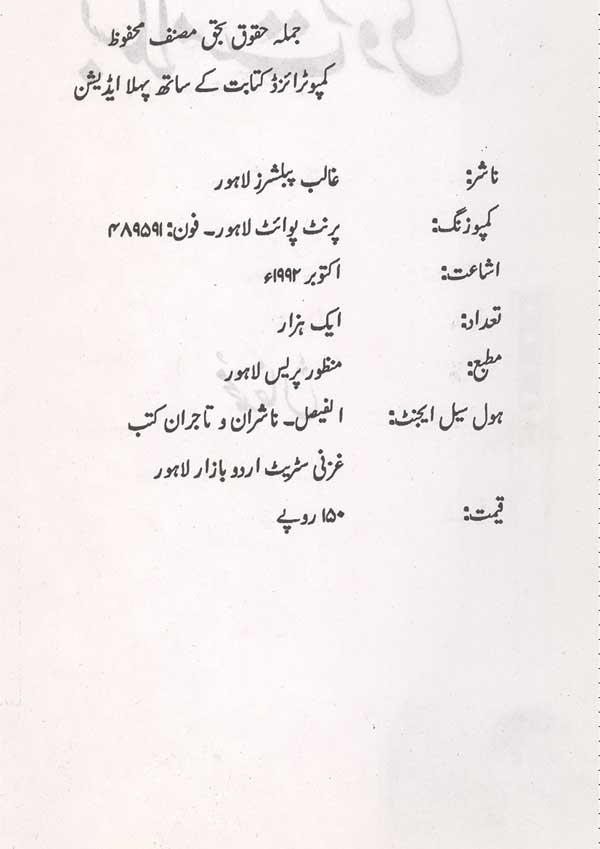 جملہ حقوق بحق مصنف محفوظ
کمپوٹرائزڈ کتابت کے ساتھ پہلا ایڈیشن
ناشر: غالب پبلشرز لاہور
کمپوزنگ: پرنٹ پوائٹ لاہور۔ فون: ۴۸۹۵۹۱
اشاعت: اکتوبر ۱۹۹۲ء
تعداد: ایک ہزار
مطبع: منظور پریس لاہور
ہول سیل ایجنٹ: الفیصل۔ ناشران و تاجران کتب
غزنی سٹریٹ اردو بازار لاہور
قیمت: ۱۵۰ روپے